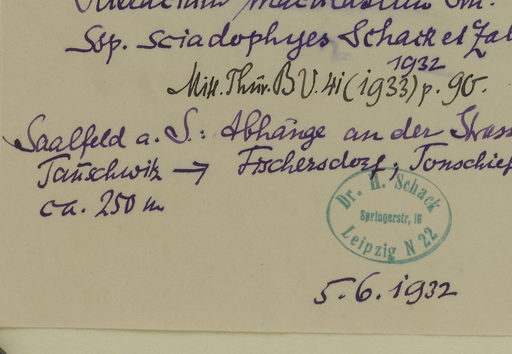 Hieracium maculatum Sm.
Ssp. sciadophyes Schack et Zal
1932
Mitt. Thür. B V. 41 (1933) p. 90.
Saalfeld a. S.: Abhänge an der Strass
Tauschwitz → Fischersdorf, Tonschief
ca. 250 m
Dr. H. Schack
Springerstr. 16
Leipzig N 22
5.6.1932